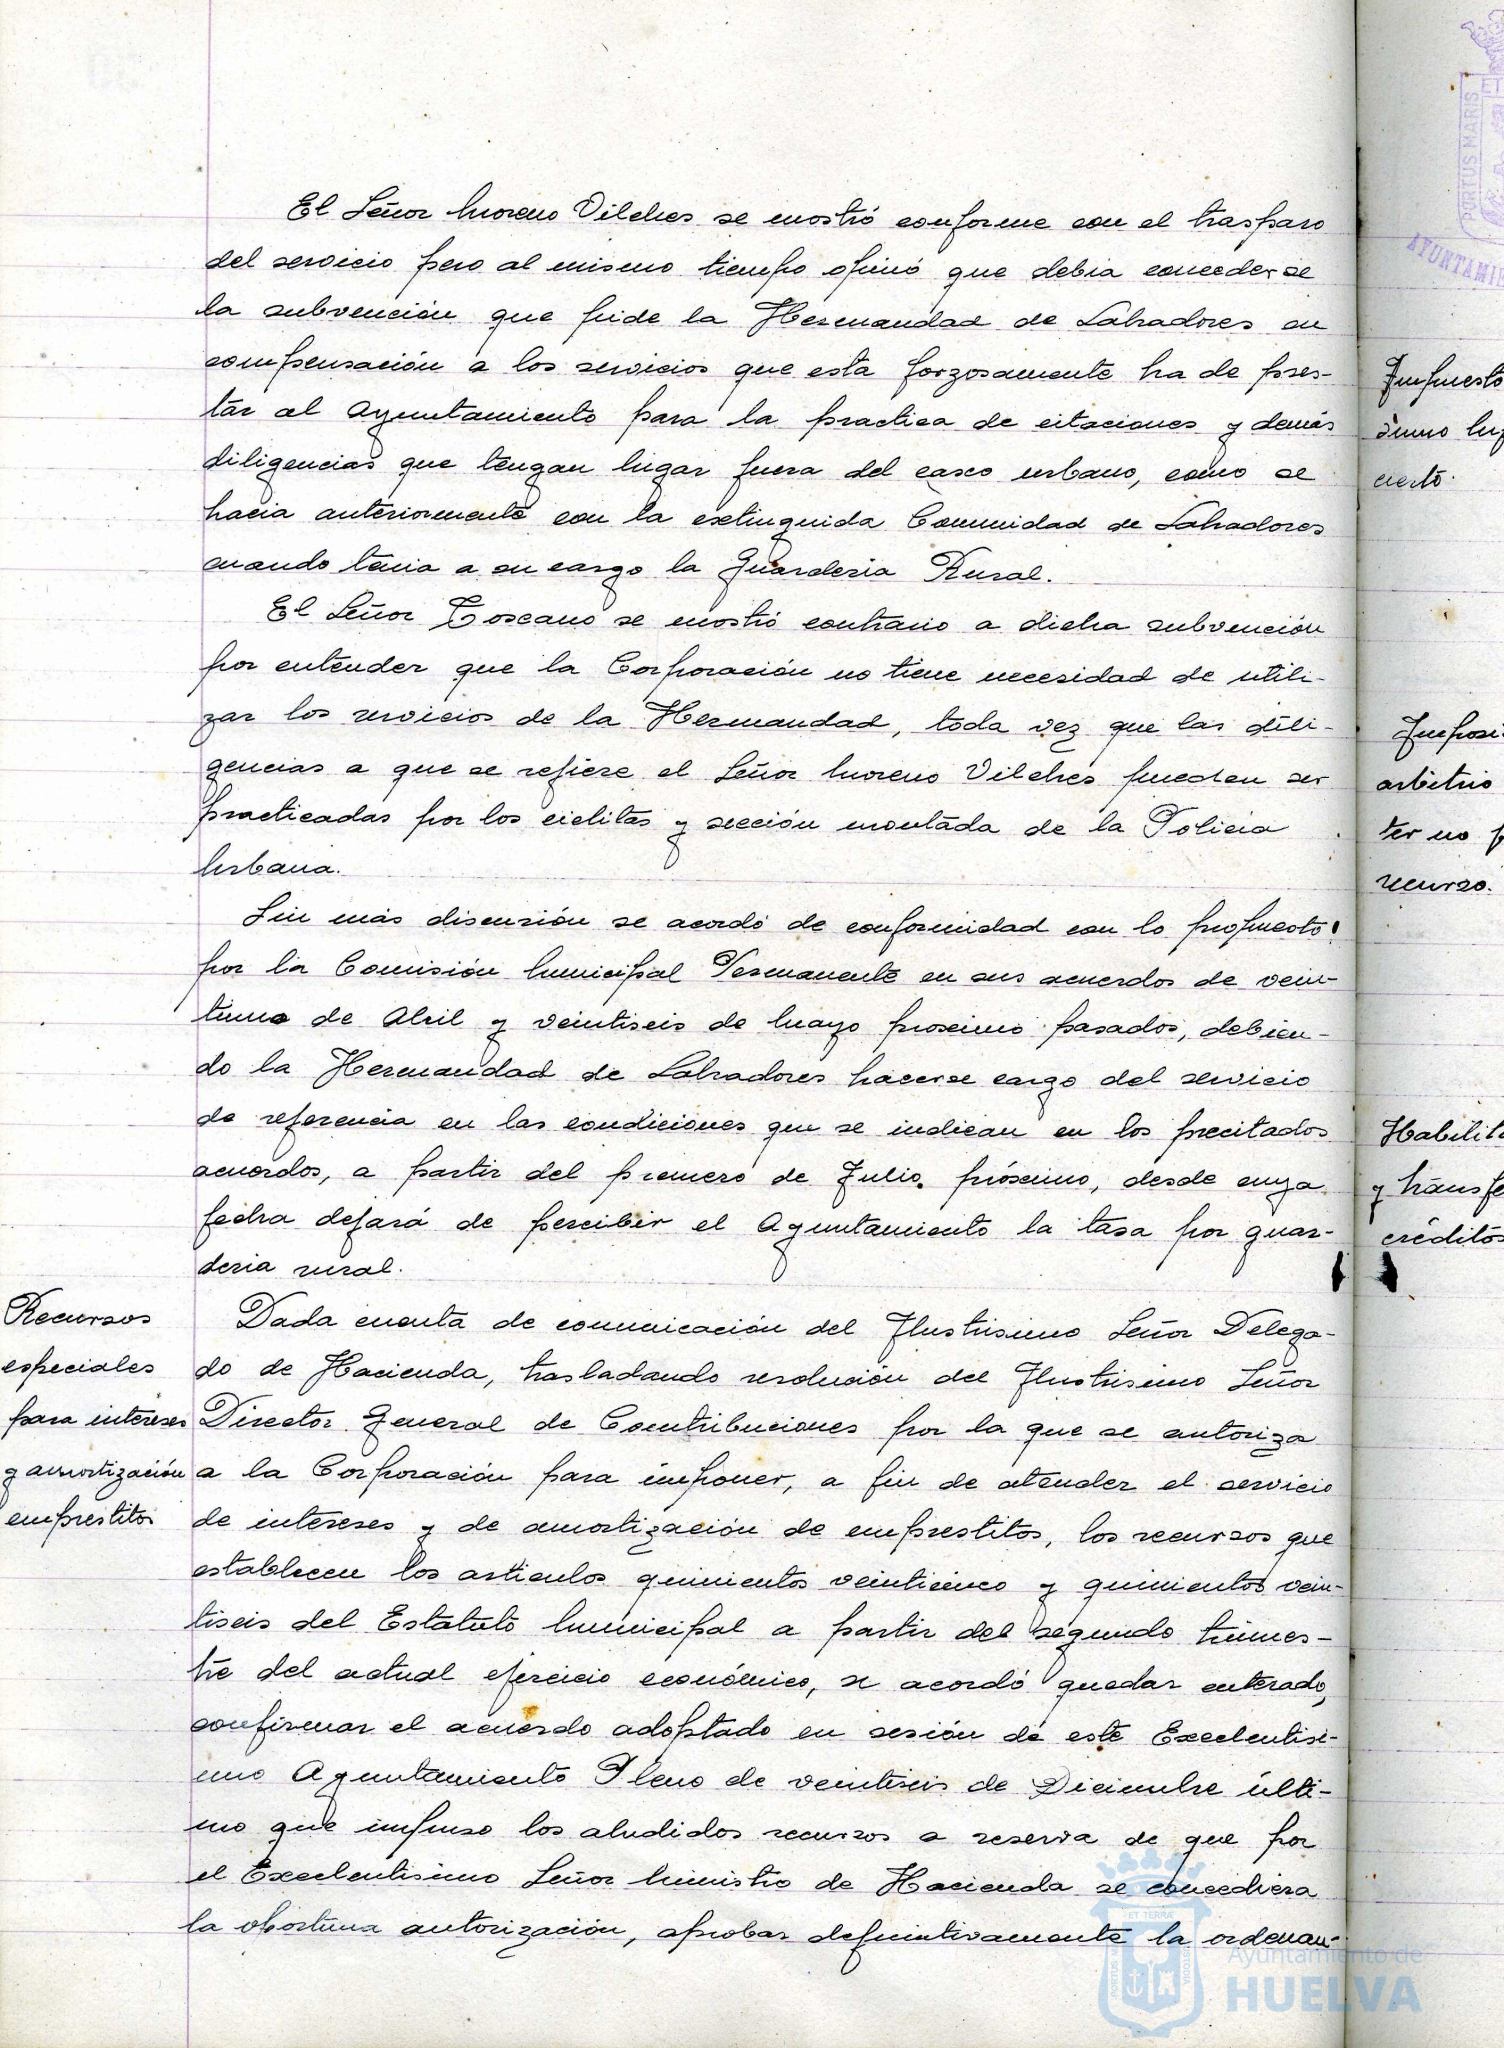 El Señor Moreno Vilches se mostró conforme con el traspaso
del servicio pero al mismo tiempo opinó que debia concederse
la subvención que pide la Hermandad de Labradores en
compensación a los servicios que esta forzosamente ha de pres-
tar al Ayuntamiento para la practica de citaciones y demás
diligencias que tengan lugar fuera del casco urbano, como se
hacia anteriormente con la extinguida Comunidad de Labradores
cuando tenia a su cargo la Guarderia Rural.
El Señor Toscano se mostró contrario a dicha subvención
por entender que la Corporación no tiene necesidad de utili-
zar los servicios de la Hermandad, toda vez que las dili-
gencias a que se refiere el Señor Moreno Vilches pueden ser
practicadas por los ciclitas y sección montada de la Policia
Urbana.
Sin más discusión se acordó de conformidad con lo propuesto
por la Comisión Municipal Permanente en sus acuerdos de vein-
tiuno de Abril y veintiseis de Mayo proximo pasados, debien-
do la Hermandad de Labradores hacerse cargo del servicio
de referencia en las condiciones que se indican en los precitados
acuerdos, a partir del primero de Julio próximo, desde cuya
fecha dejará de percibir el Ayuntamiento la tasa por guar-
deria rural.
Recursos
especiales
para intereses
y amortización
emprestitos
Dada cuenta de comunicación del Ilustrisimo Señor Delega-
do de Hacienda, trasladando resolución del Ilustrisimo Señor
Director General de Contribuciones por la que se autoriza
a la Corporación para imponer, a fin de atender el servicio
de intereses y de amortización de emprestitos, los recursos que
establecen los articulos quinientos veinticinco y quinientos vein-
tiseis del Estatuto Municipal a partir del segundo trimes-
tre del actual ejercicio económico, se acordó quedar enterado,
confirmar el acuerdo adoptado en sesión de este Excelentisi-
mo Ayuntamiento Pleno de veintiseis de Diciembre últi-
mo que impuso los aludidos recursos a reserva de que por
el Excelentisimo Señor Ministro de Hacienda se concediera
la oportuna autorización, aprobar definitivamente la ordenan-
PORTUS MARIS
AYUNTAMI
Impuesto
cierto.
Imposi
arbitrio
ter no p
recurso.
Habilita
y transfe
créditos
ET TERRA
Ayuntamiento de
HUELVA